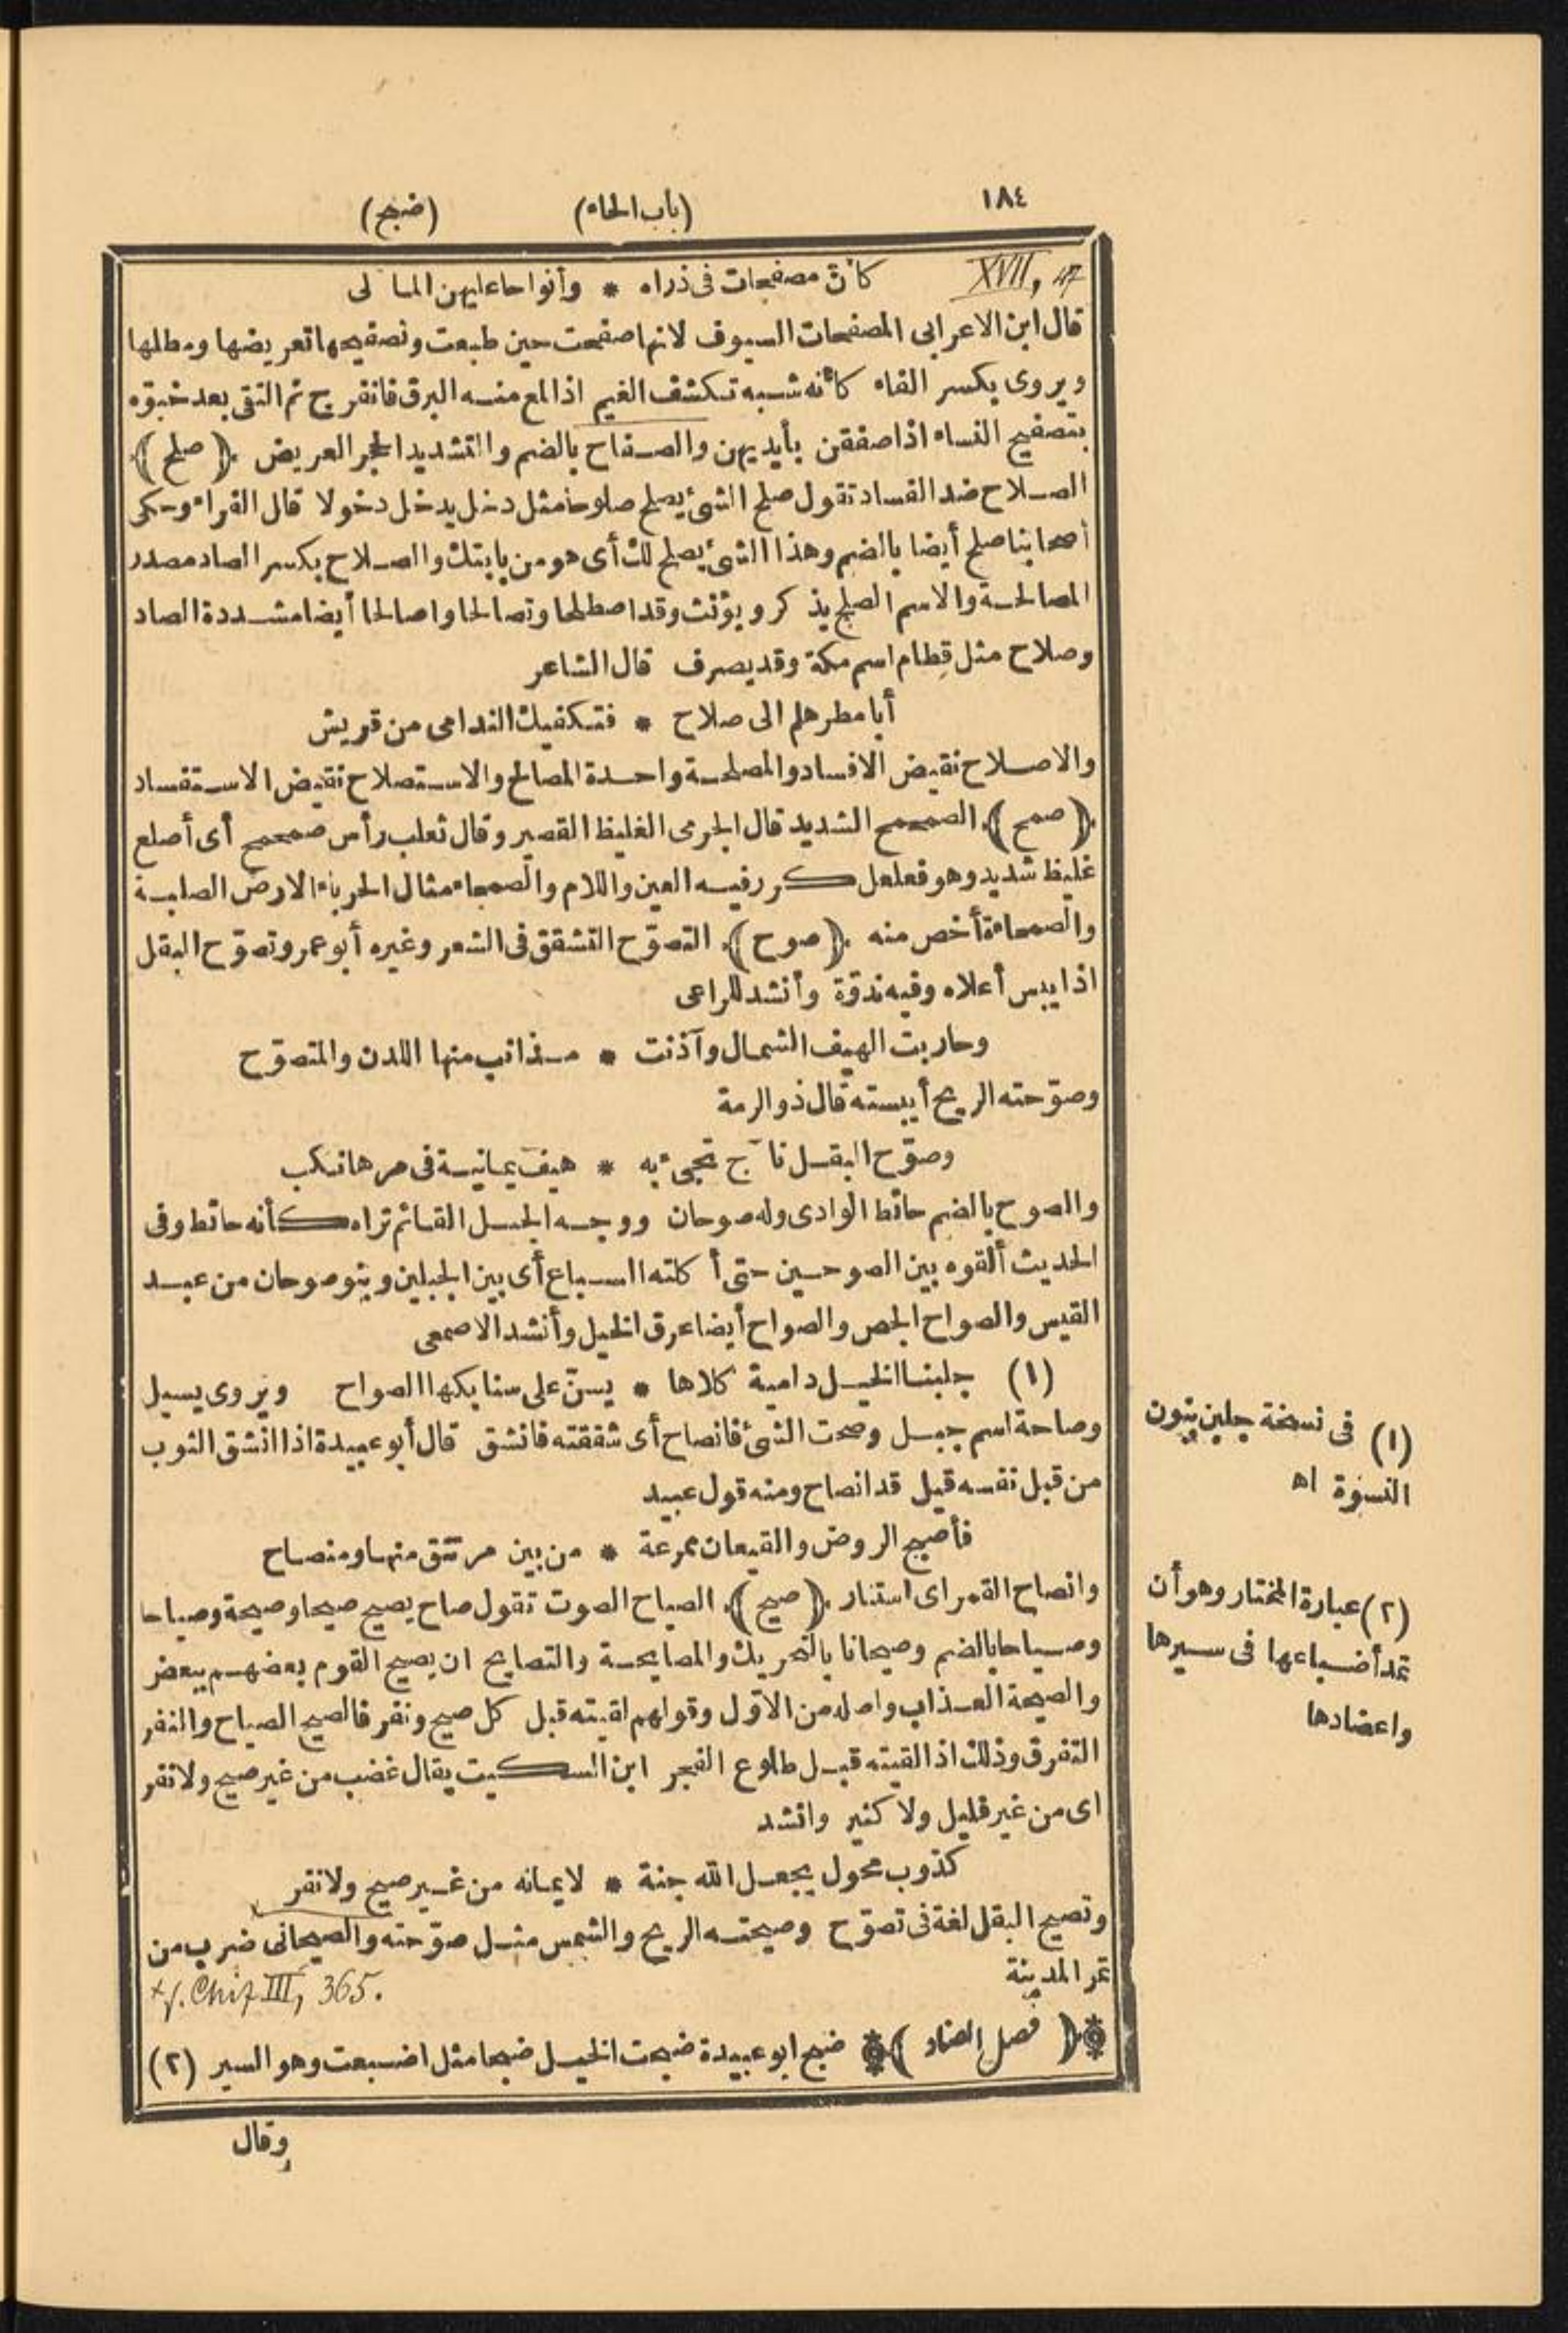 ١٨٤ (باب الحاء) (ضبح)
XVII, 47
كأن مصفحات فى ذراه * وأنواحا عليهن المآلى
قال ابن الاعرابى المصفحات السيوف لانها صفحت حين طبعت وتصفيحها تعريضها ومطلها
ويروى بكسر الفاء كأنه شبه تكشف الغيم اذا لمع منه البرق فانفرج ثم التقى بعد خبوّه
بتصفيح النساء اذا صفقن بأيديهن والصفاح بالضم والتشديد الحجر العريض ﴿صلح﴾
الصلاح ضد الفساد تقول صلح الشئ يصلح صلوحا مثل دخل يدخل دخولا قال الفراء وحكى
أصحابنا صلح أيضا بالضم وهذا الشئ يصلح لك أى هو من بابتك والصلاح بكسر الصاد مصدر
المصالحة والاسم الصلح يذكر ويؤنث وقد اصطلحا وتصالحا واصالحا أيضا مشددة الصاد
وصلاح مثل قطام اسم مكة وقد يصرف قال الشاعر
أبا مطر هلم الى صلاح * فتكفيك الندامى من قريش
والاصلاح نقيض الافساد والمصلحة واحدة المصالح والاستصلاح نقيض الاستفساد
﴿صمح﴾ الصمحمح الشديد قال الجرمى الغليظ القصير وقال ثعلب رأس صمحمح أى أصلع
غليظ شديد وهو فعلعل كرر فيه العين واللام والصمحاء مثال الحرباء الارض الصلبة
والصمحاءة أخص منه ﴿صوح﴾ التصوّح التشقق فى الشعر وغيره أبو عمرو تصوّح البقل
اذا يبس أعلاه وفيه ندوّة وأنشد للراعى
وحاربت الهيف الشمال وآذنت * مذانب منها اللدن والمتصوّح
وصوّحته الريح أيبسته قال ذو الرمة
وصوّح البقل نآج تجىء به * هيف يمانية فى مرها نكب
والصوح بالضم حائط الوادى وله صوحان ووجه الجبل القائم تراه كأنه حائط وفى
الحديث ألقوه بين الصوحين حتى أكلته السباع أى بين الجبلين وبنو صوحان من عبد
القيس والصواح الجص والصواح أيضا عرق الخيل وأنشد الاصمعى
(١) جلبنا الخيل دامية كلاها * يسنّ على سنابكها الصواح ويروى يسيل
وصاحة اسم جبل وصحت الشئ فانصاح أى شققته فانشق قال أبو عبيدة اذا انشق الثوب
من قبل نفسه قيل قد انصاح ومنه قول عبيد
فأصبح الروض والقيعان ممرعة * من بين مرتتق منها ومنصاح
وانصاح القمر اى استنار ﴿صيح﴾ الصياح الصوت تقول صاح يصيح صيحا وصيحة وصياحا
وصياحا بالضم وصيحانا بالتحريك والمصايحة والتصايح ان يصيح القوم بعضهم ببعض
والصيحة العذاب واصله من الاوّل وقولهم لقيته قبل كل صيح ونفر فالصيح الصياح والنفر
التفرق وذلك اذا لقيته قبل طلوع الفجر ابن السكيت يقال غضب من غير صيح ولا نفر
اى من غير قليل ولا كثير وانشد
كذوب محول يجعل الله جنة * لايمانه من غير صيح ولا نفر
وتصيح البقل لغة فى تصوّح وصيحته الريح والشمس مثل صوّحته والصيحانى ضرب من
تمر المدينة
365.
﴿فصل الضاد﴾ ضبح ابو عبيدة ضبحت الخيل ضبحا مثل اضبعت وهو السير (٢)
وقال
(١) فى نسخة جلبن بنون
النسوة اه
(٢) عبارة المختار وهو أن
تمد أضباعها فى سيرها
واعضادها